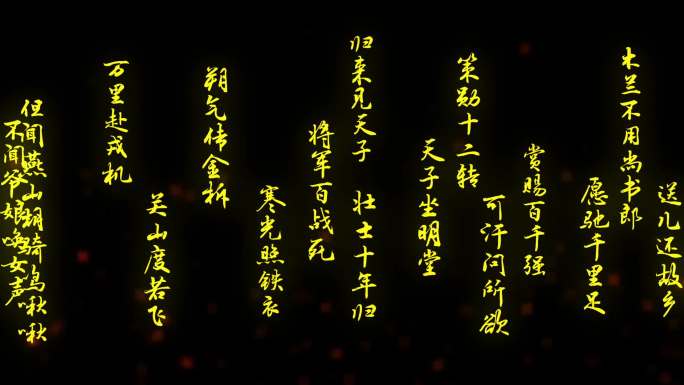 不闻爷娘唤女声
但闻燕山胡骑鸣啾啾
万里赴戎机
关山度若飞
朔气传金柝
寒光照铁衣
将军百战死
壮士十年归
归来见天子
天子坐明堂
策勋十二转
赏赐百千强
可汗问所欲
木兰不用尚书郎
愿驰千里足
送儿还故乡